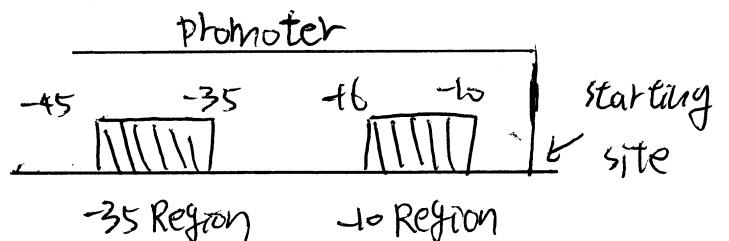 promoter
-45 -35 -16 -10 starting
site
-35 Region -10 Region